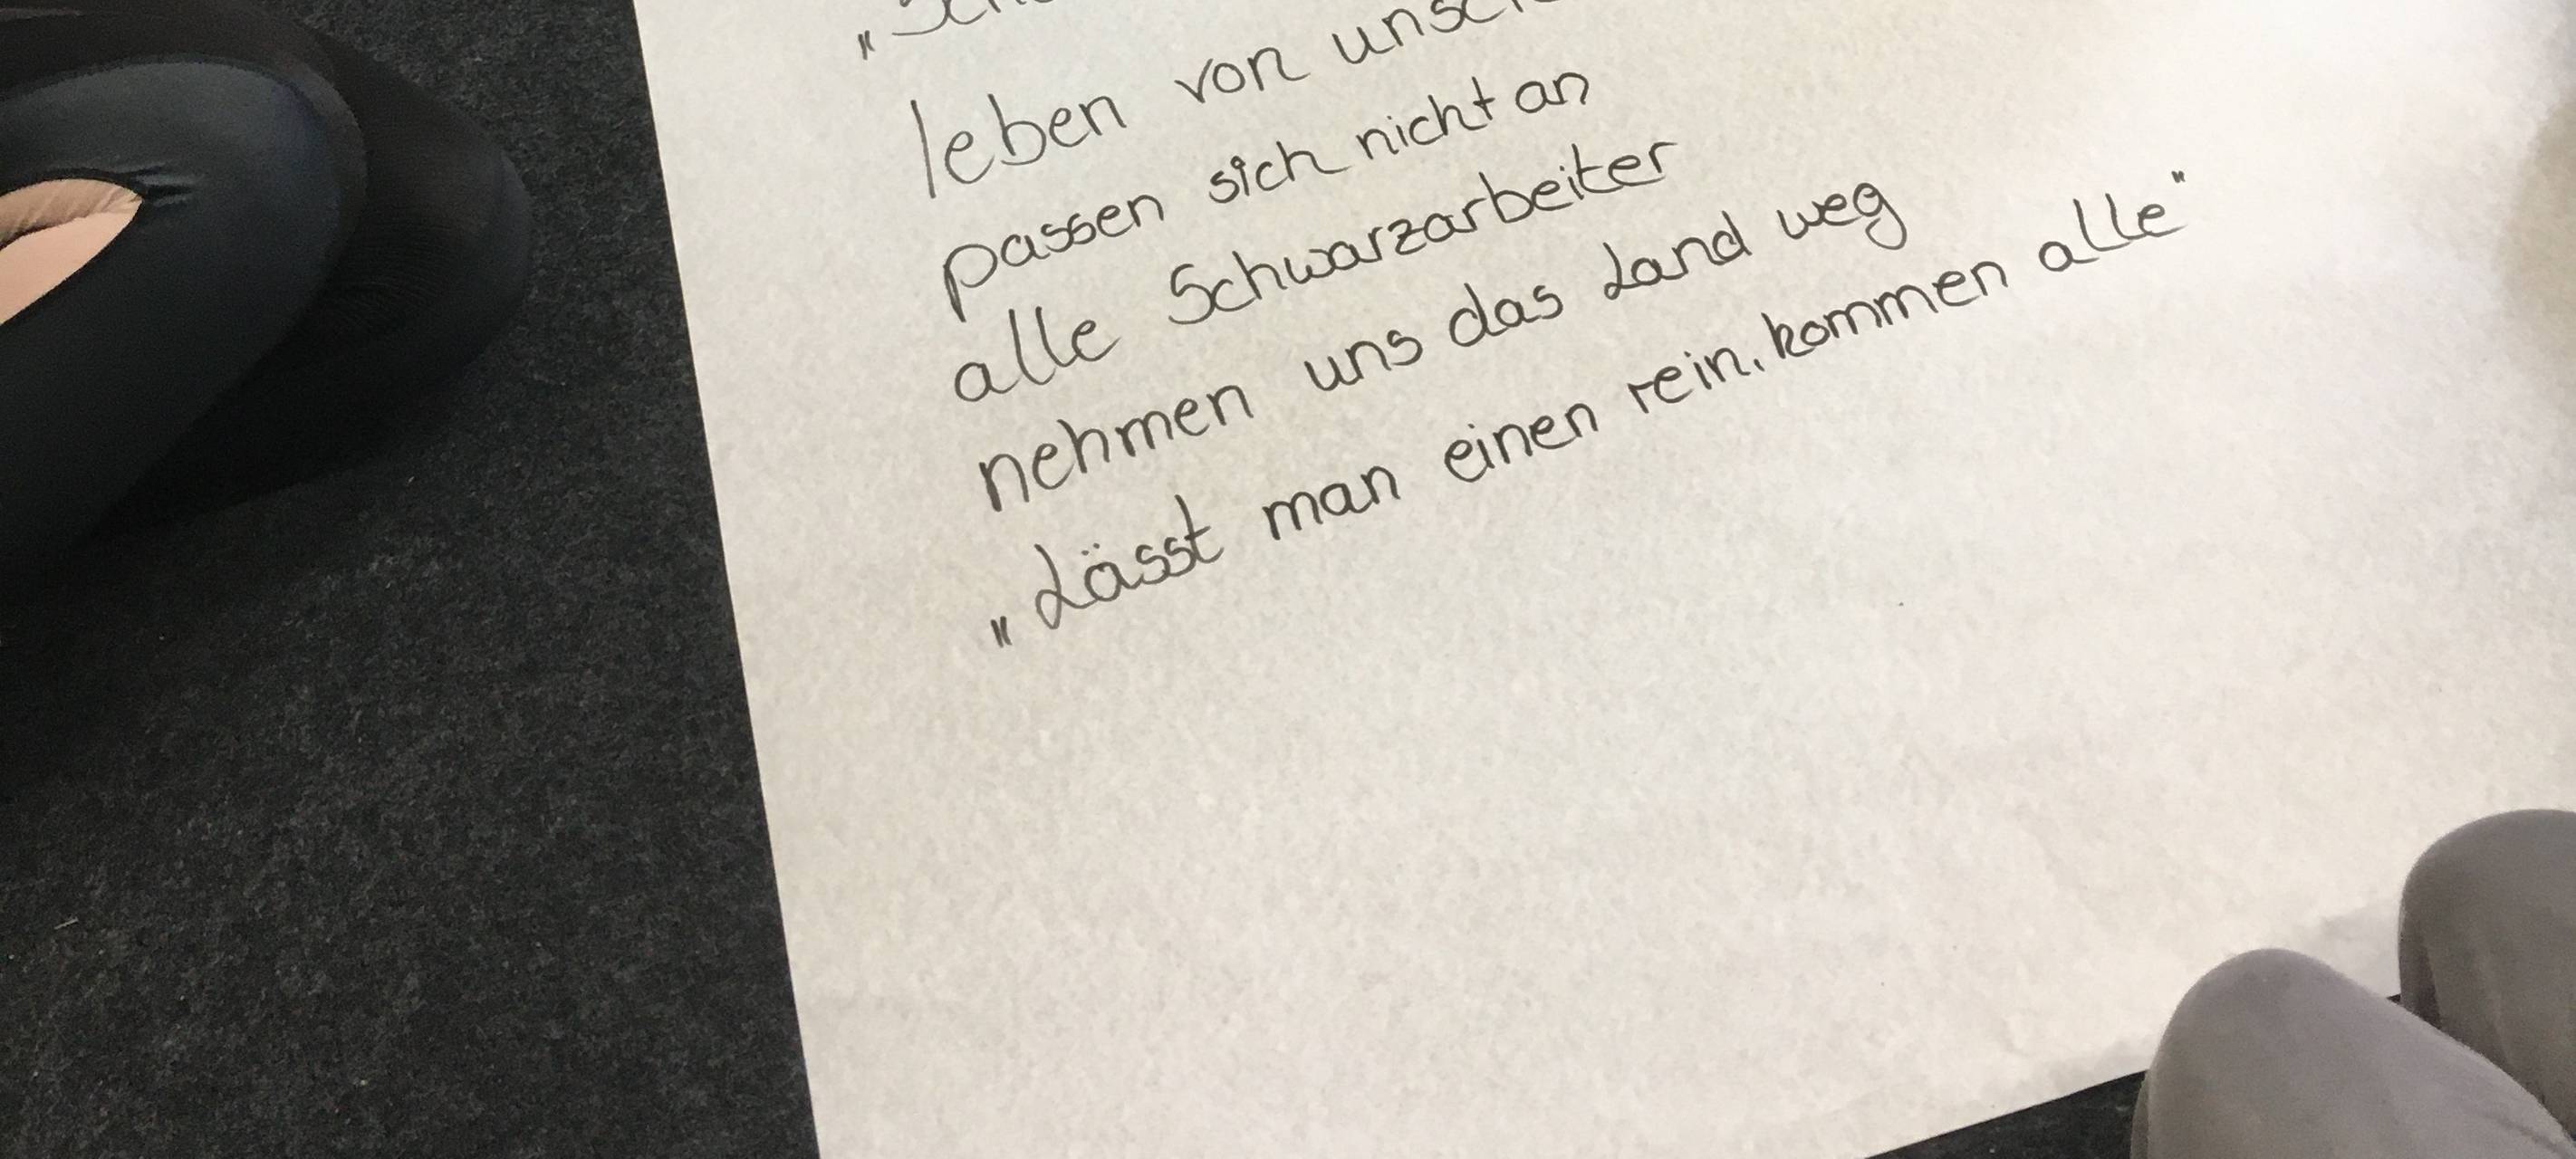 leben von
passen sich nicht an
alle Schwarzarbeiter
nehmen uns das Land weg
„Lässt man einen rein, kommen alle"